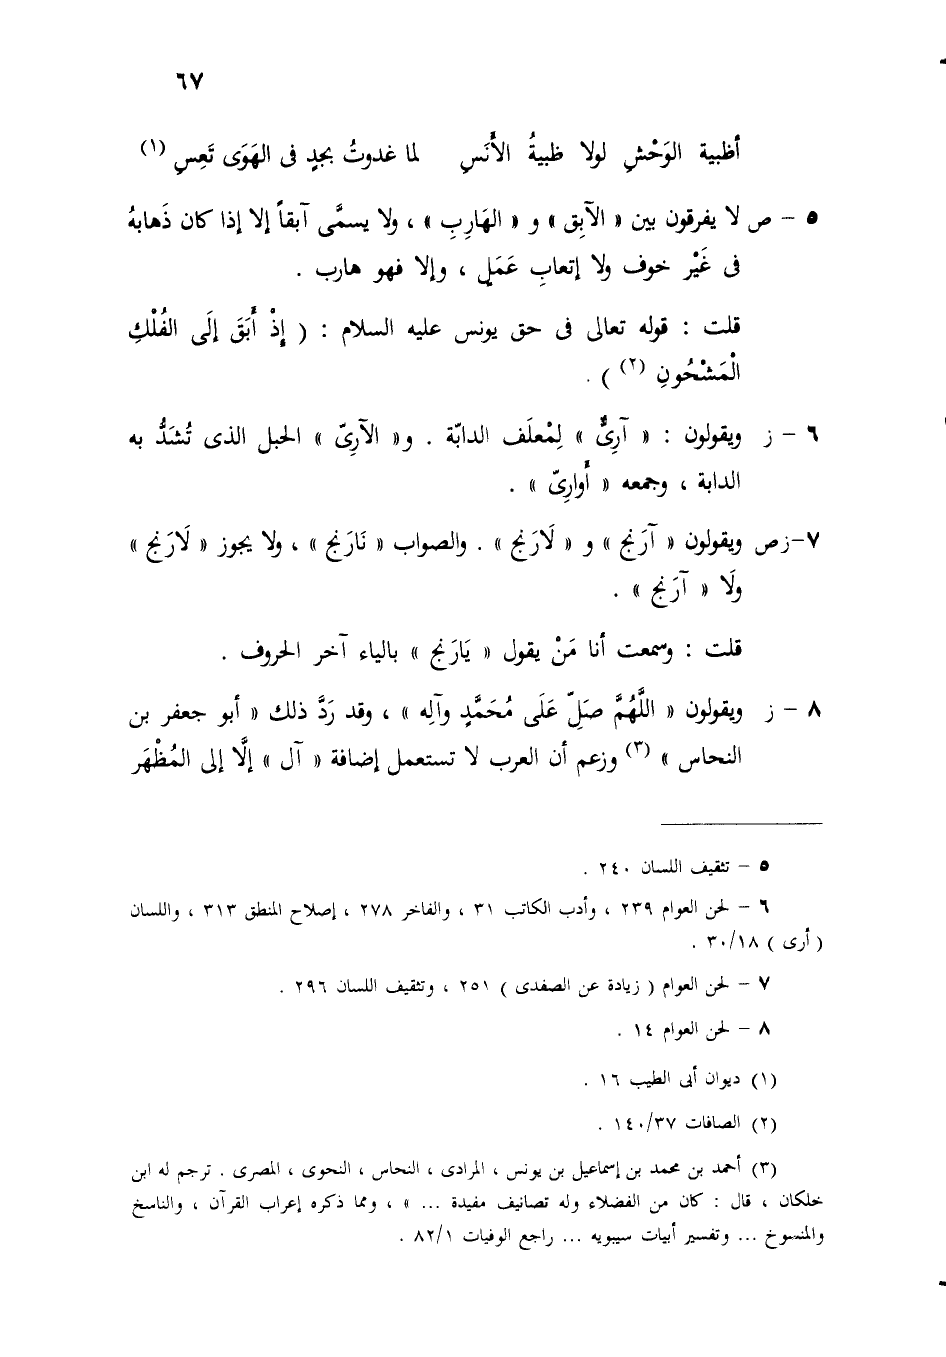 ٦٧
أظبية الوَحْشِ لولا ظبيةُ الأَنَسِ لما غدوتُ بجدٍ فى الهَوَى تَعِسِ (١)
٥ – ص لا يفرقون بين « الآبِق » و « الهَارِبِ » ، ولا يسمَّى آبقاً إلا إذا كان ذَهابهُ
فى غَيْر خوف ولا إتعابِ عَمَلٍ ، وإلا فهو هارب .
قلت : قوله تعالى فى حق يونس عليه السلام : ( إِذْ أَبَقَ إِلَى الفُلْكِ
الْمَشْحُونِ (٢) ) .
٦ – ز ويقولون : « آرِىٌّ » لِمْعلَف الدابّة . و« الآرِىّ » الحبل الذى تُشَدُّ به
الدابة ، وجمعه « أَوارِىّ » .
٧–ز ص ويقولون « آرَنج » و « لَارَنج » . والصواب « نَارَنج » ، ولا يجوز « لَارَنج »
ولَا « آرَنج » .
قلت : وسمعت أنا مَنْ يقول « يَارَنج » بالياء آخر الحروف .
٨ – ز ويقولون « اللَّهُمَّ صَلِّ عَلَى مُحَمَّدٍ وآلِه » ، وقد رَدَّ ذلك « أبو جعفر بن
النحاس » (٣) وزعم أن العرب لا تستعمل إضافة « آل » إلَّا إلى المُظْهَر
٥ – تثقيف اللسان ٢٤٠ .
٦ – لحن العوام ٢٣٩ ، وأدب الكاتب ٣١ ، والفاخر ٢٧٨ ، إصلاح المنطق ٣١٣ ، واللسان
( أرى ) ٣٠/١٨ .
٧ – لحن العوام ( زيادة عن الصفدى ) ٢٥١ ، وتثقيف اللسان ٢٩٦ .
٨ – لحن العوام ١٤ .
(١) ديوان أبى الطيب ١٦ .
(٢) الصافات ١٤٠/٣٧ .
(٣) أحمد بن محمد بن إسماعيل بن يونس ، المرادى ، النحاس ، النحوى ، المصرى . ترجم له ابن
خلكان ، قال : كان من الفضلاء وله تصانيف مفيدة ... » ، ومما ذكره إعراب القرآن ، والناسخ
والمنسوخ ... وتفسير أبيات سيبويه ... راجع الوفيات ٨٢/١ .